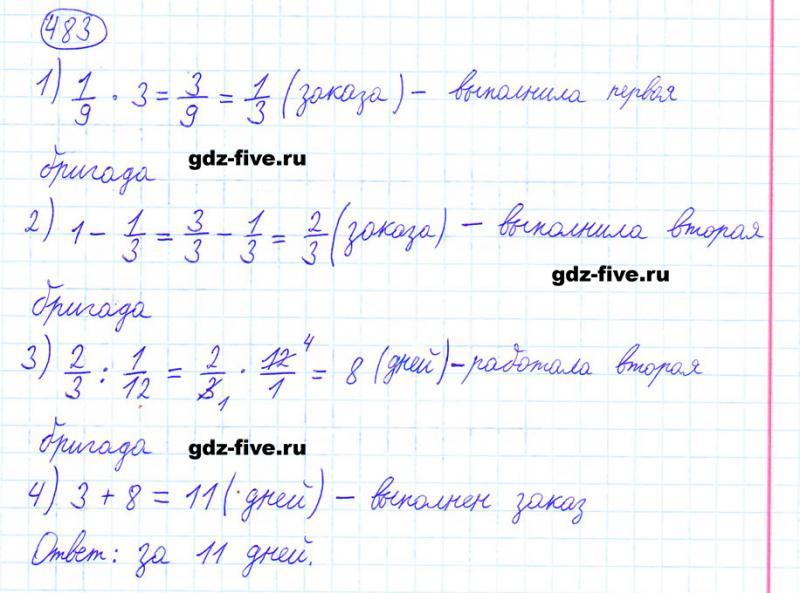 483
1) 1/9 · 3 = 3/9 = 1/3 (заказа) – выполнила первая
бригада gdz-five.ru
2) 1 – 1/3 = 3/3 – 1/3 = 2/3 (заказа) – выполнила вторая
gdz-five.ru
бригада
3) 2/3 : 1/12 = 2/3 1 · 12 4/1 = 8 (дней) – работала вторая
бригада gdz-five.ru
4) 3 + 8 = 11 (дней) – выполнен заказ
Ответ: за 11 дней.